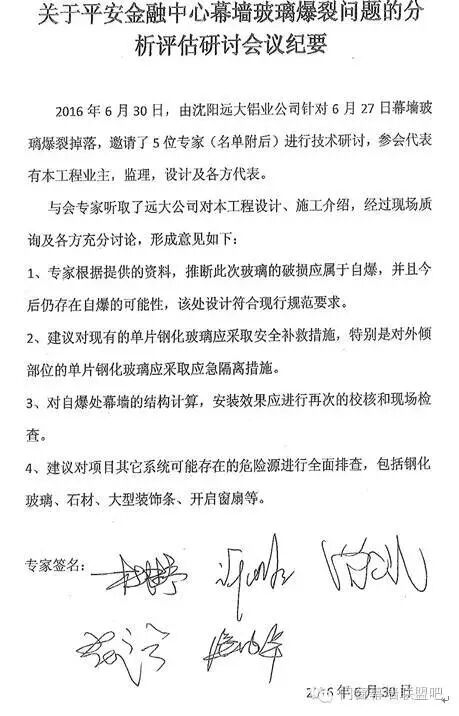 关于平安金融中心幕墙玻璃爆裂问题的分
析评估研讨会议纪要
2016年6月30日，由沈阳远大铝业公司针对6月27日幕墙玻
璃爆裂掉落，邀请了5位专家（名单附后）进行技术研讨，参会代表
有本工程业主，监理，设计及各方代表。
与会专家听取了远大公司对本工程设计、施工介绍，经过现场质
询及各方充分讨论，形成意见如下：
1、专家根据提供的资料，推断此次玻璃的破损应属于自爆，并且今
后仍存在自爆的可能性，该处设计符合现行规范要求。
2、建议对现有的单片钢化玻璃应采取安全补救措施，特别是对外倾
部位的单片钢化玻璃应采取应急隔离措施。
3、对自爆处幕墙的结构计算，安装效果应进行再次的校核和现场检
查。
4、建议对项目其它系统可能存在的危险源进行全面排查，包括钢化
玻璃、石材、大型装饰条、开启窗扇等。
专家签名：
2016年6月30日
幕墙联盟吧